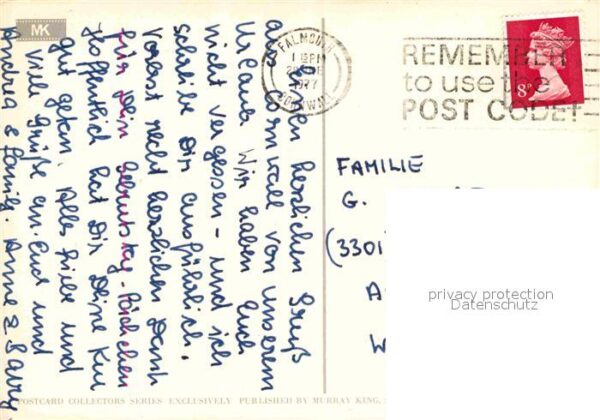 MK
FALMOUTH
1977
CORNWALL
REMEMBER
to use the
POST CODE!
8P
Einen herzlichen Gruß
aus Cornwall von unserem
Urlaub. Wir haben Euch
nicht vergessen - und ich
schreibe Dir ausführlich.
Vorerst recht herzlichen Dank
für Dein Geburtstags-Päckchen
Hoffentlich hat Dir Deine Kur
gut getan. Alles Liebe und
viele Grüße an Euch und
Andrea & Family. Anne & Barry
FAMILIE
G.
(3301)
A
W
privacy protection
Datenschutz
POSTCARD COLLECTORS SERIES EXCLUSIVELY PUBLISHED BY MURRAY KING,